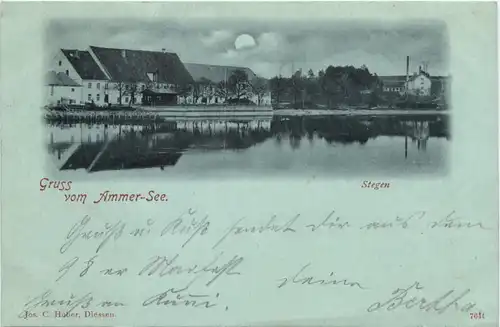 Gruss
vom Ammer-See.
Stegen
Gruß u. Kuß sendet Dir aus dem
deine
Gruß an Bertha
Jos. C. Huber, Diessen.
7651